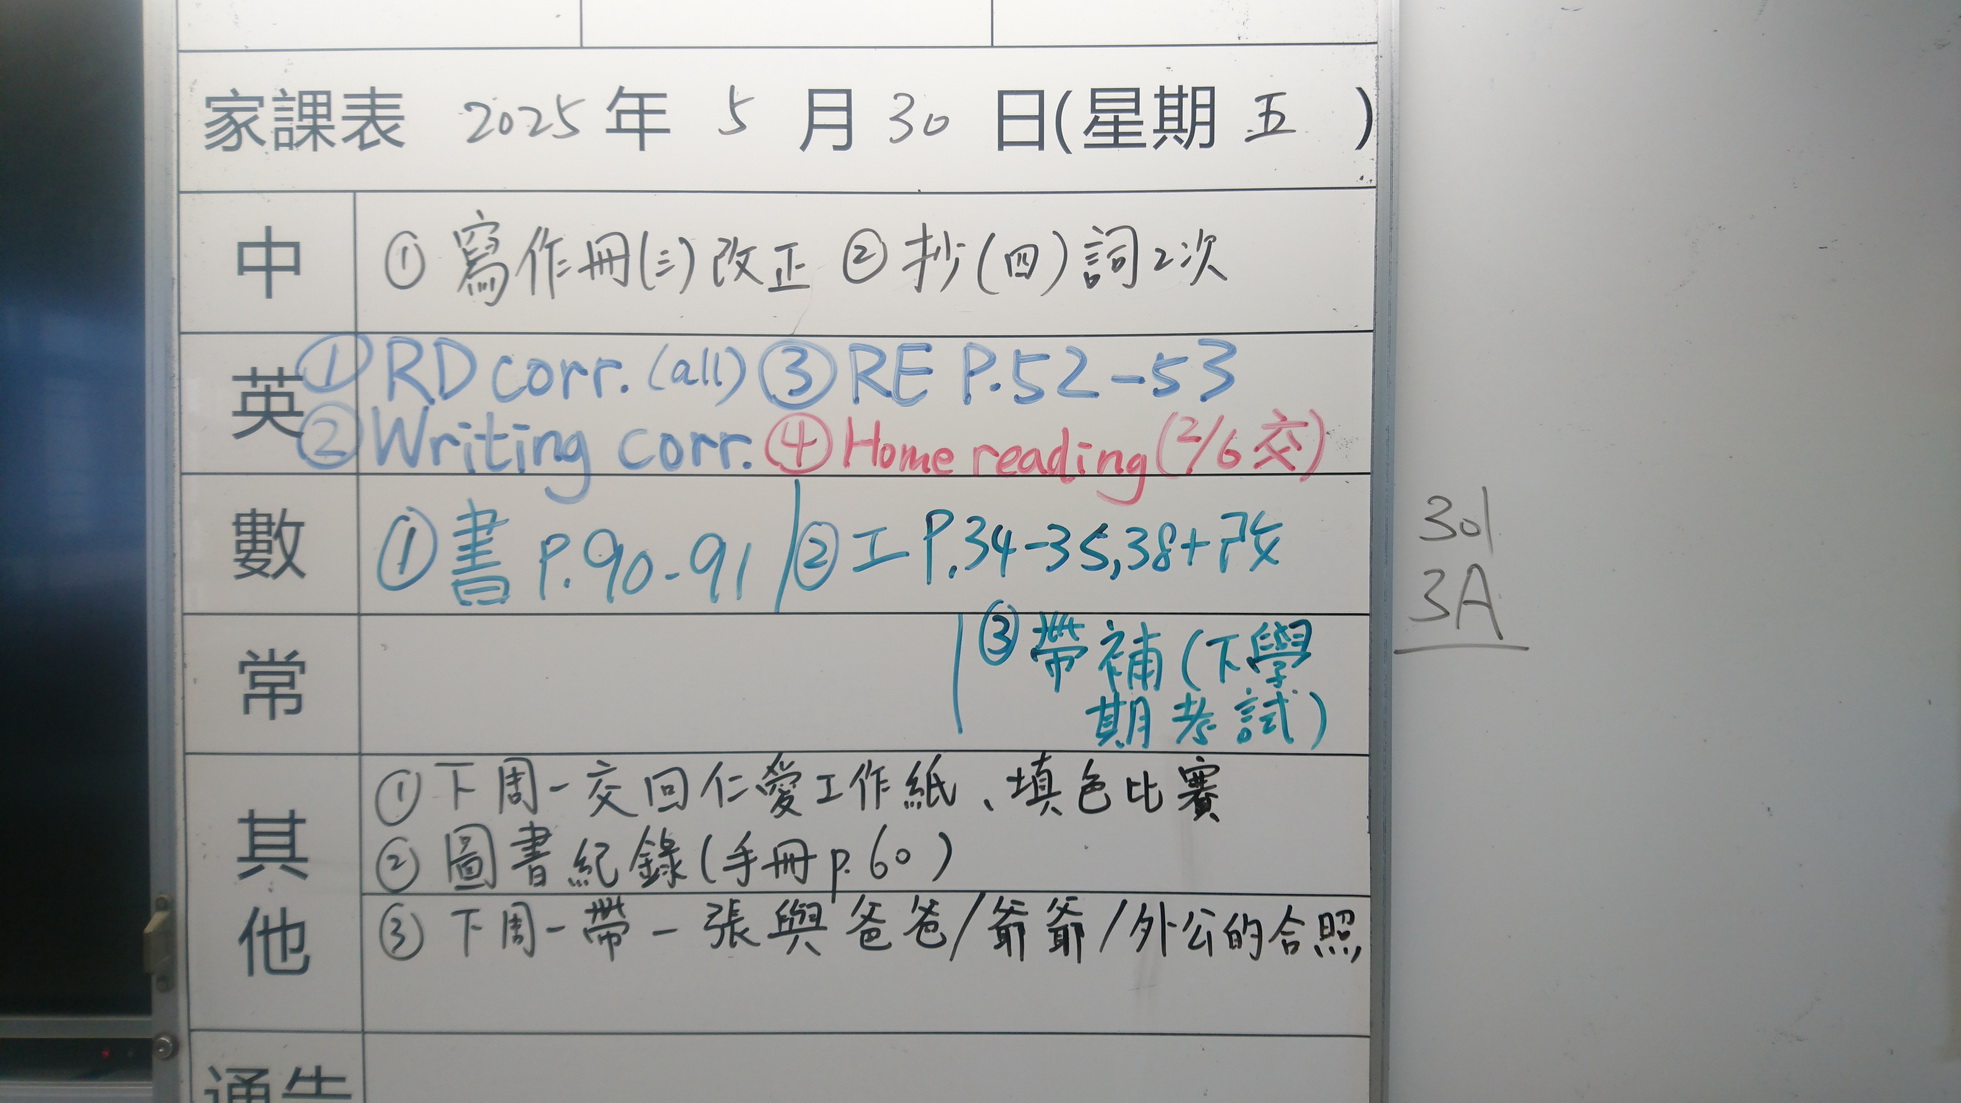 家課表 2025 年 5 月 30 日(星期 五 )
中 ① 寫作冊(三)改正 ② 抄(四)詞2次
英 ① RD corr. (all) ③ RE P.52-53
② Writing corr. ④ Home reading (2/6 交)
數 ① 書 P.90-91 / ② 工 P.34-35,38+改
常 ③ 帶補(下學
期考試)
其他 ① 下周一交回仁愛工作紙、填色比賽
② 圖書紀錄(手冊p.60)
③ 下周一帶一張與爸爸/爺爺/外公的合照,
通告
301
3A